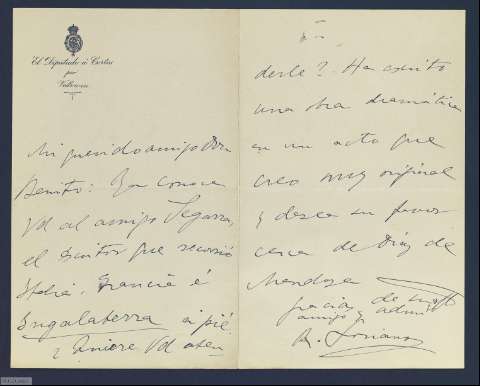 El Diputado á Cortes
por
Valencia
Mi querido amigo Don
Benito: Ya conoce
Vd al amigo Segarra,
el escritor que recorrió
Italia, Francia é
Inglaterra á pié.
¿Quiere Vd aten
derle? Ha escrito
una obra dramática
en un acto que
creo muy original
y desea su favor
cerca de Díaz de
Mendoza
gracias de su aff
amigo y admir
R. Soriano